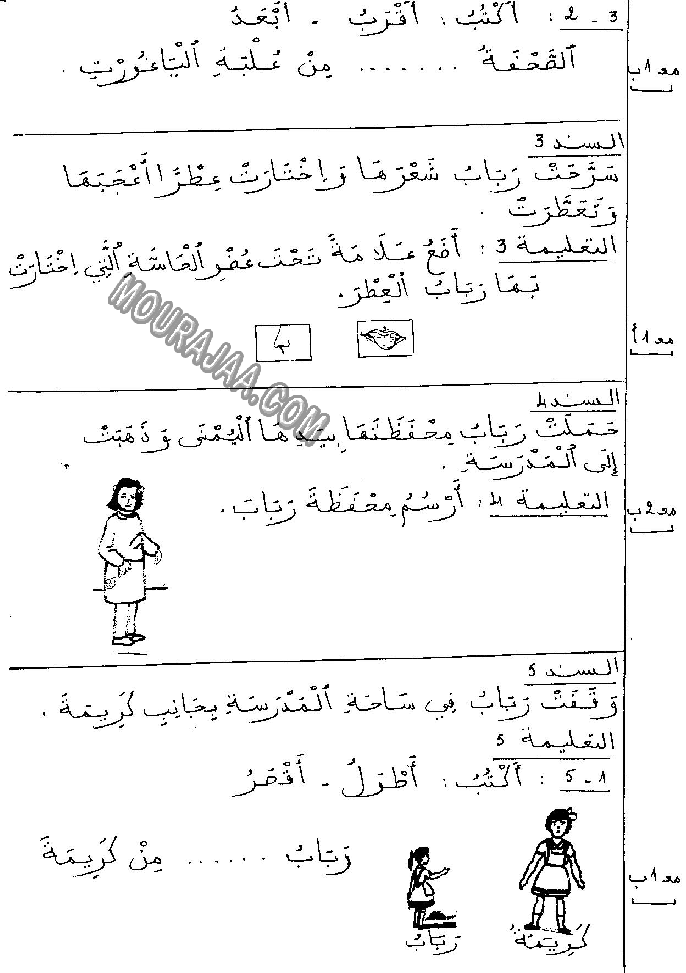 2 - 3 : أَكْتُبُ : أَقْرَبُ - أَبْعَدُ
الصَّحْفَةُ ....... مِنْ عُلْبَةِ الْيَاغُورْتِ .
مع 1 ب
السند 3
سَرَّحَتْ رَبَابُ شَعْرَهَا وَاِخْتَارَتْ عِطْرًا أَعْجَبَهَا
وَتَعَطَّرَتْ .
التعليمة 3 : أَضَعُ عَلَامَةً تَحْتَ عُضْوِ الْحَاسَّةِ الَّتِي اِخْتَارَتْ
بِهَا رَبَابُ الْعِطْرَ.
مع 1 أ
MOURAJAA.COM
السند 4
حَمَلَتْ رَبَابُ مِحْفَظَتَهَا بِيَدِهَا الْيُمْنَى وَذَهَبَتْ
إِلَى الْمَدْرَسَةِ .
التعليمة 4 : أَرْسُمُ مِحْفَظَةَ رَبَابَ .
مع 2 ب
السند 5
وَقَفَتْ رَبَابُ فِي سَاحَةِ الْمَدْرَسَةِ بِجَانِبِ كَرِيمَةَ .
التعليمة 5
5 - 1 : أَكْتُبُ : أَطْوَلُ - أَقْصَرُ
رَبَابُ ...... مِنْ كَرِيمَةَ
مع 1 ب
كَرِيمَةُ
رَبَابُ